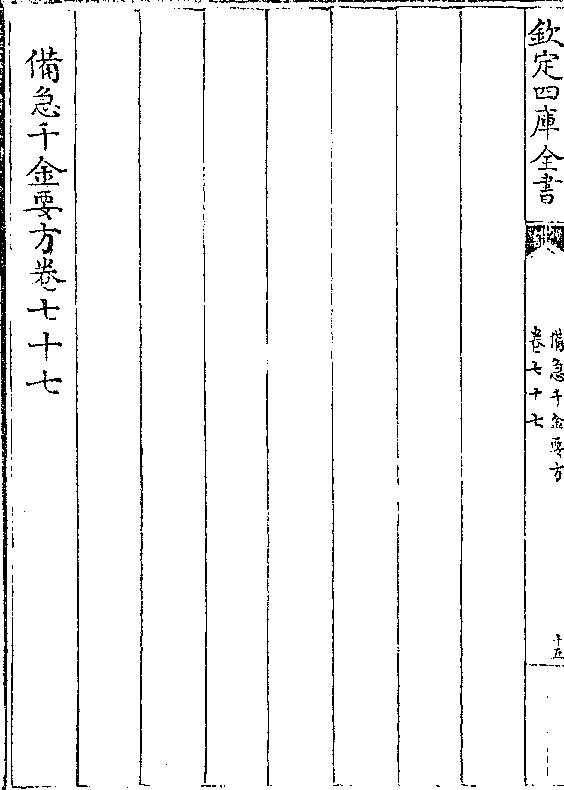 欽定四庫全書
備急千金要方
卷七十七
十五
備急千金要方卷七十七